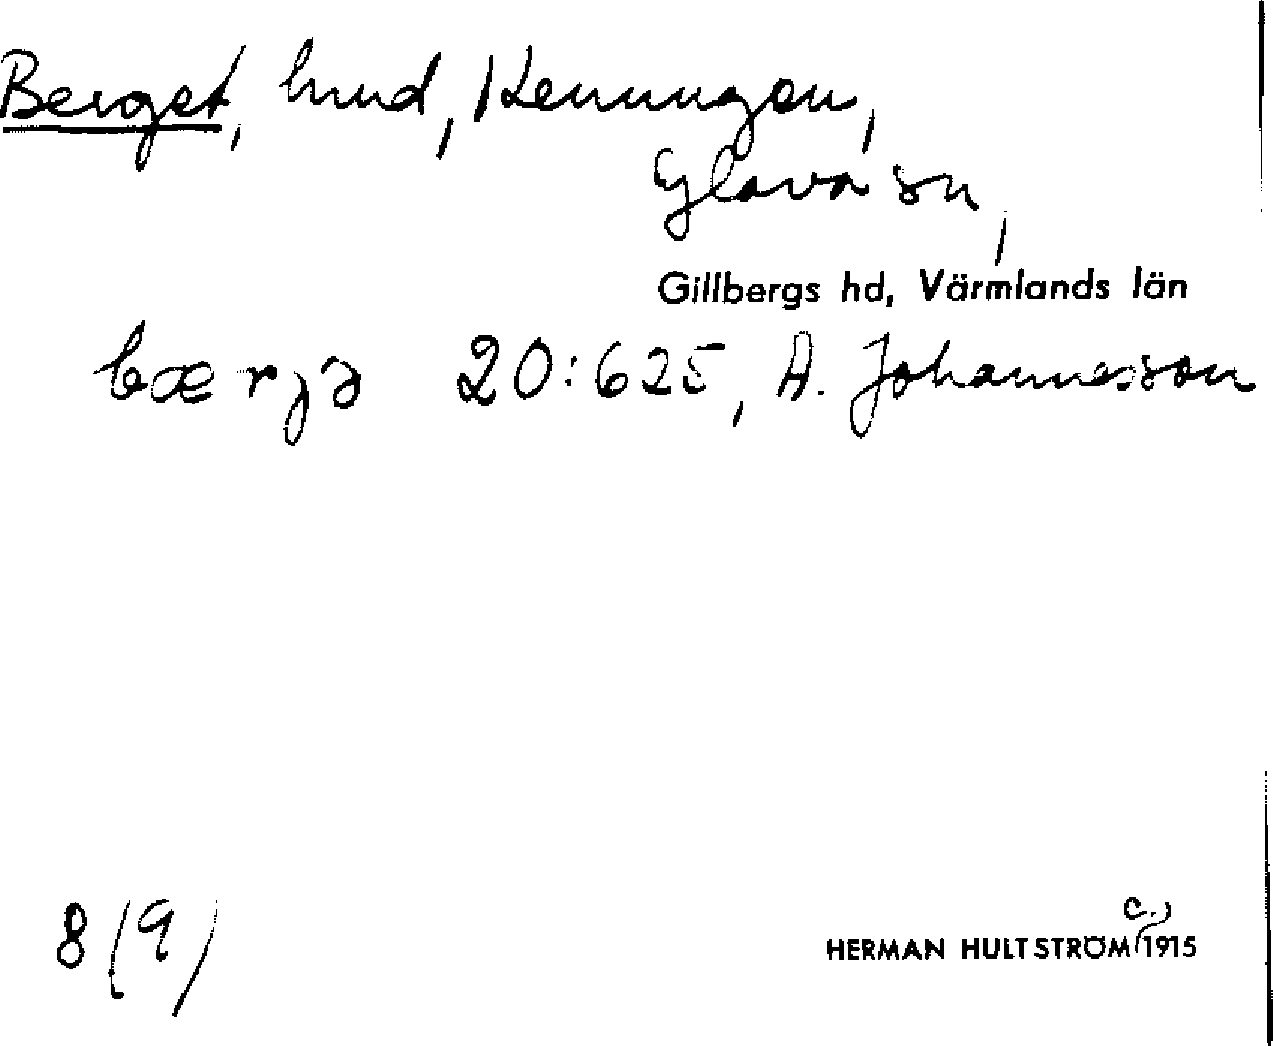 Berget, hmd, Kenungen,
Glava sn,
Gillbergs hd, Värmlands län
bærjə 20:625, A. Johannesson
8 (9)
HERMAN HULTSTRÖM c., 1915